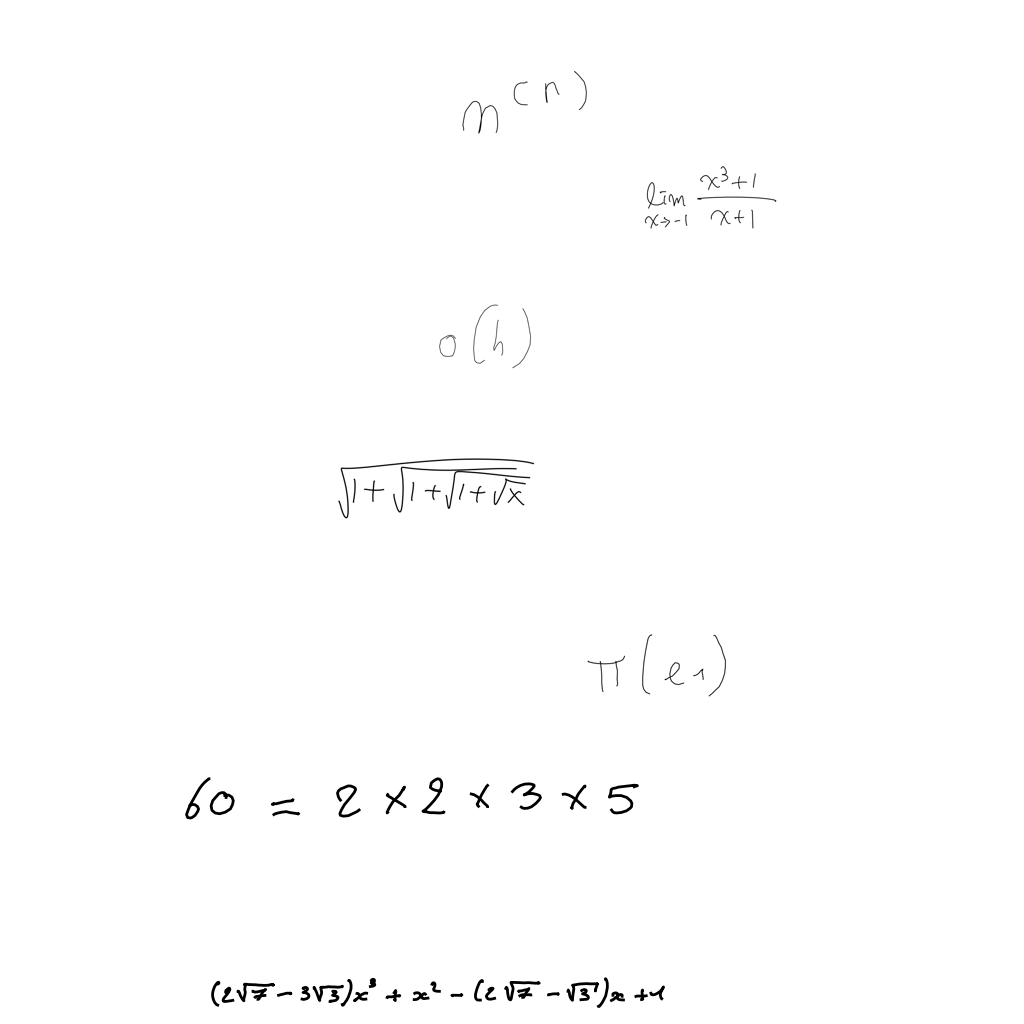 n^{(n)}
\lim_{x \to -1} \frac{x^3+1}{x+1}
o(h)
\sqrt{1+\sqrt{1+\sqrt{1+\sqrt{x}}}}
π(e_1)
60 = 2 × 2 × 3 × 5
(2√7 - 3√3)x³ + x² - (2√7 - √3)x + 1